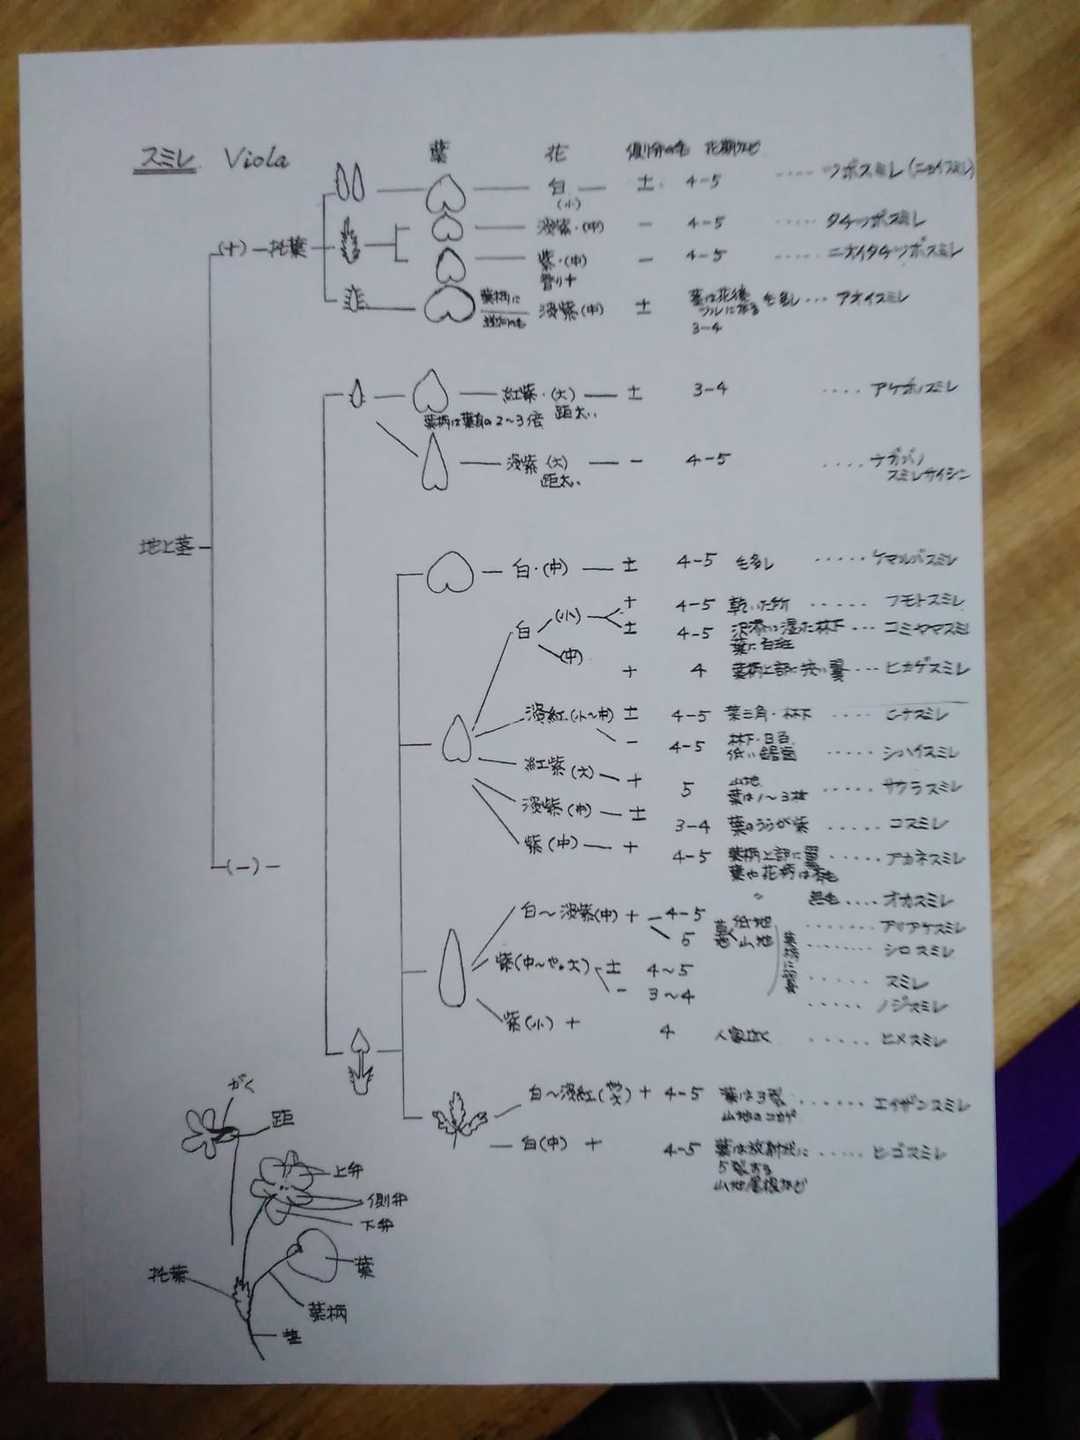 スミレ Viola
葉 花 側弁の毛 花期など
白 (小) ± 4-5 ····· ツボスミレ(ニョイスミレ)
(+) 托葉
淡紫・(中) - 4-5 ····· タチツボスミレ
紫・(中) - 4-5 ····· ニオイタチツボスミレ
香り+
葉柄に 淡紫(中) ± 茎は花後 毛多し ··· アオイスミレ
逆向の毛 ツルになる
3-4
紅紫・(大) ± 3-4 ···· アケボノスミレ
葉柄は葉身の2〜3倍 距太い
淡紫(大) - 4-5 ···· ナガバノ
距太い スミレサイシン
地上茎
白・(中) ± 4-5 毛多し ····· ケマルバスミレ
白 (小) + 4-5 乾いた所 ····· フモトスミレ
± 4-5 沢添い湿った林下 ··· コミヤマスミレ
葉に白斑
(中) + 4 葉柄上部に狭い翼 ··· ヒカゲスミレ
淡紅(小〜中) ± 4-5 葉三角・林下 ···· ヒナスミレ
- 4-5 林下・日当 ····· シハイスミレ
低い鋸歯
紅紫(大) + 5 山地 ····· サクラスミレ
葉は1〜3枚
淡紫(中) ± 3-4 葉のうらが紫 ····· コスミレ
紫(中) + 4-5 葉柄上部に翼 ····· アカネスミレ
葉や花柄は有毛
(-)
〃 無毛 ···· オカスミレ
白〜淡紫(中) + 4-5 低地 ······· アリアケスミレ
5 山地 ······· シロスミレ
葉柄に翼
紫(中〜やゝ大) ± 4〜5 ····· スミレ
- 3〜4 ····· ノジスミレ
紫(小) + 4 人家近く ····· ヒメスミレ
白〜淡紅 + 4-5 葉は3裂 ······ エイザンスミレ
山地のコカゲ
白(中) + 4-5 葉は放射状に ····· ヒゴスミレ
5裂する
山地尾根など
がく
距
上弁
側弁
下弁
托葉
葉
葉柄
茎